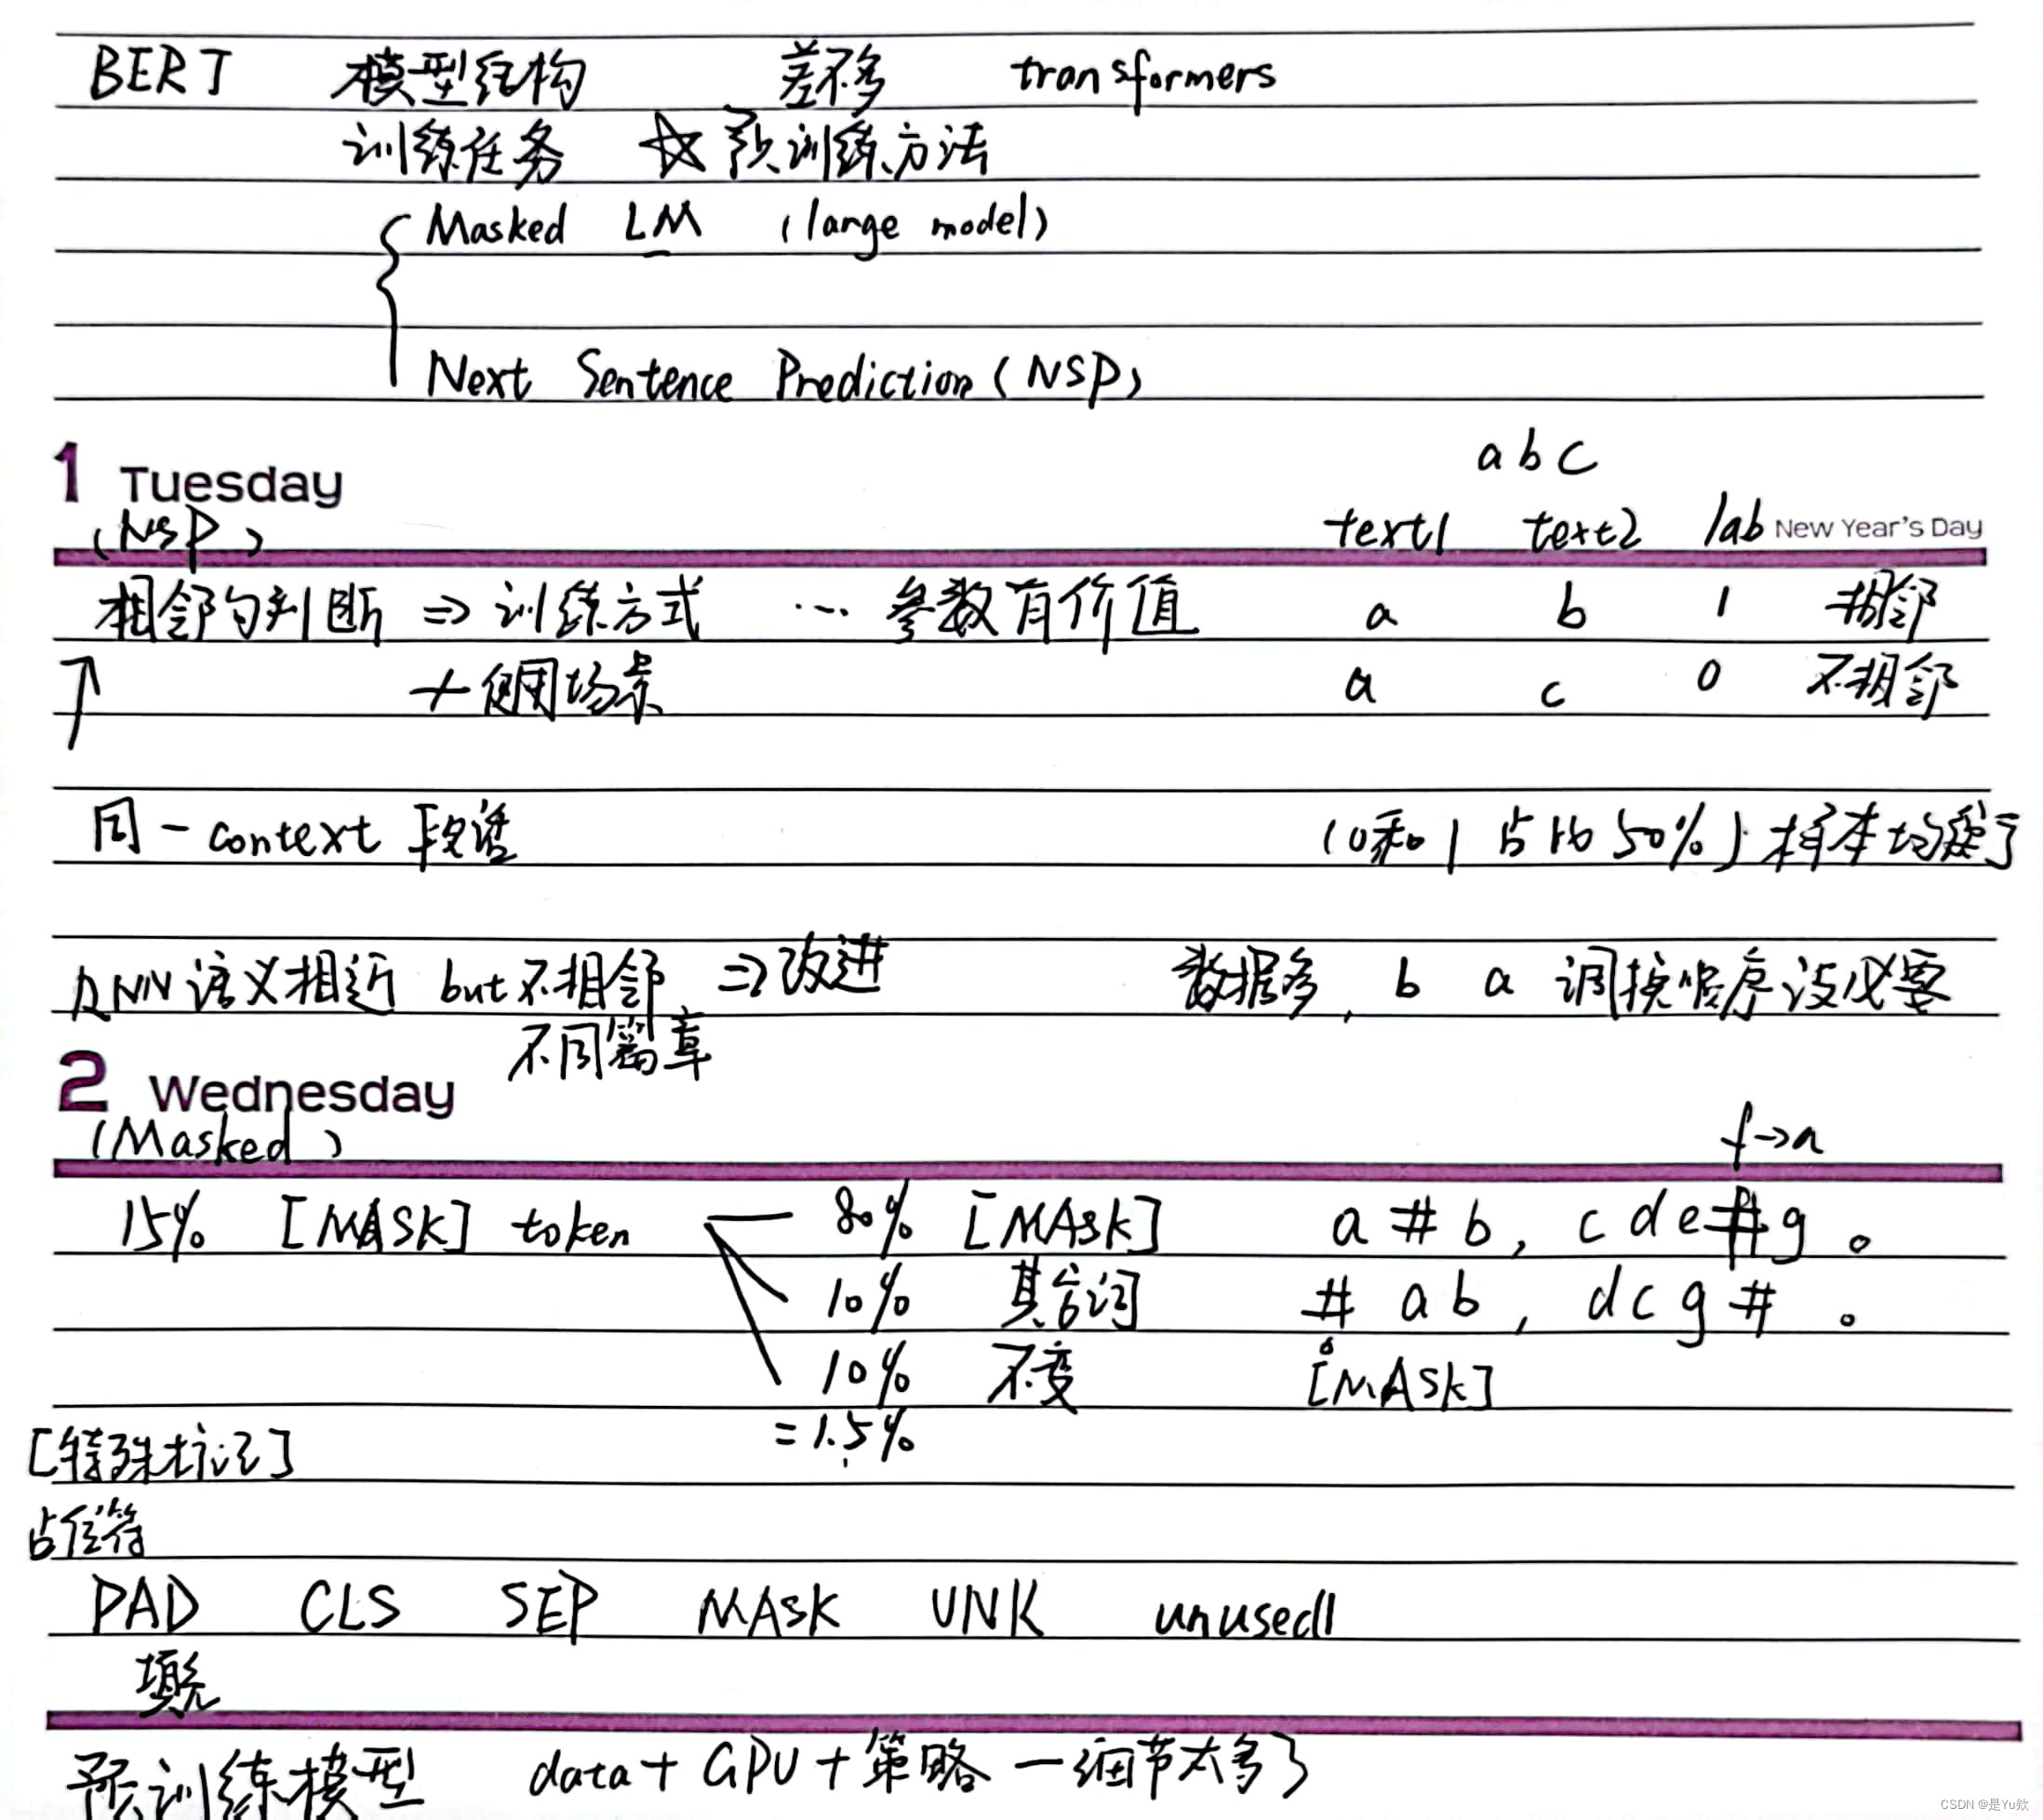 BERT 模型结构 差不多 transformers
训练任务 ☆预训练方法
Masked LM (large model)
Next Sentence Prediction (NSP)
a b c
1 Tuesday
(NSP) text1 text2 lab New Year's Day
相邻句判断 ⇒ 训练方式 ... 参数有价值 a b 1 相邻
↑ + 使用场景 a c 0 不相邻
同一context 段话 (0和1 占比50%) 样本均衡了
QNN 语义相近 but 不相邻 ⇒改进 数据多, b a 调换顺序没必要
不同篇章
2 Wednesday
(Masked) f→a
15% [MASK] token 80% [MASK] a # b, c d e # g 。
10% 其台词 # a b, d c g # 。
10% 不变 [MASK]
=1.5%
[特殊标记]
占位符
PAD CLS SEP MASK UNK unused1
填充
预训练模型 data + GPU + 策略 一细节太多了
CSDN @是Yu欸